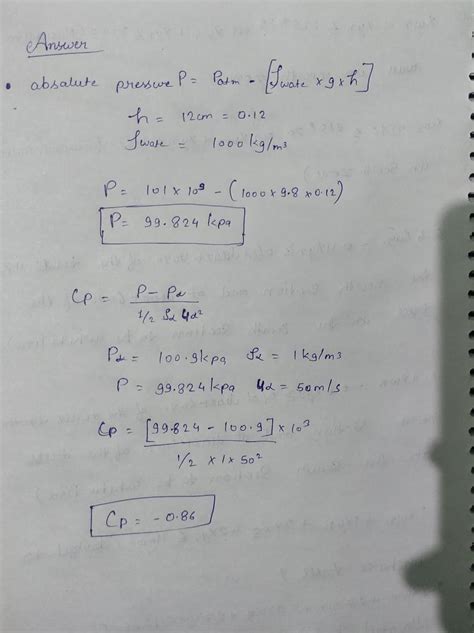 Answer
• absalute pressure P = Patm - [ρwate × g × h]
h = 12cm = 0.12
ρwate = 1000 kg/m³
P = 101 × 10⁹ - (1000 × 9.8 × 0.12)
P = 99.824 kpa
Cp = P - Pα / 1/2 ρα Uα²
Pα = 100.9kpa ρα = 1 kg/m3
P = 99.824 kpa Uα = 50m/s
Cp = [99.824 - 100.9] × 10³ / 1/2 × 1 × 50²
Cp = -0.86